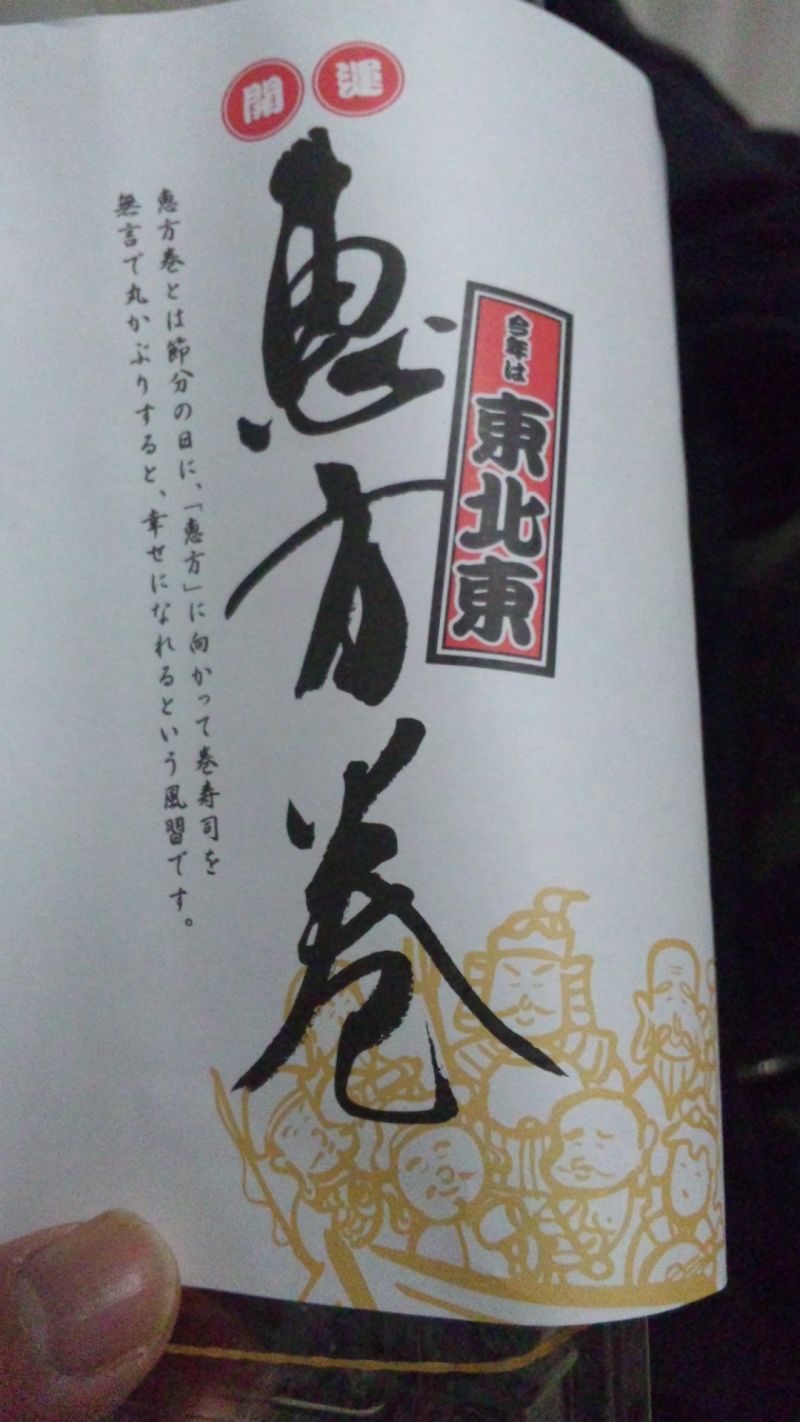 開運
今年は東北東
恵方巻
恵方巻とは節分の日に、「恵方」に向かって巻寿司を
無言で丸かぶりすると、幸せになれるという風習です。